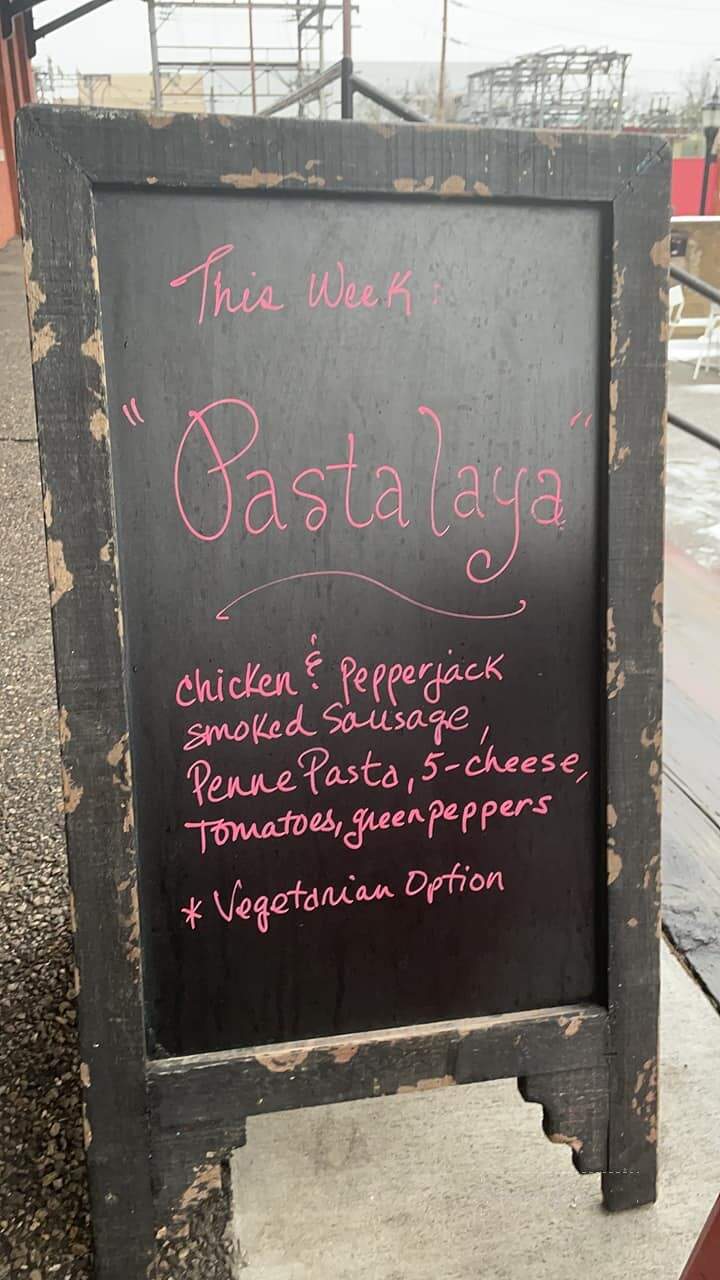 This Week:
"Pastalaya"
Chicken & Pepperjack
smoked Sausage,
Penne Pasta, 5-cheese,
Tomatoes, green peppers
* Vegetarian Option